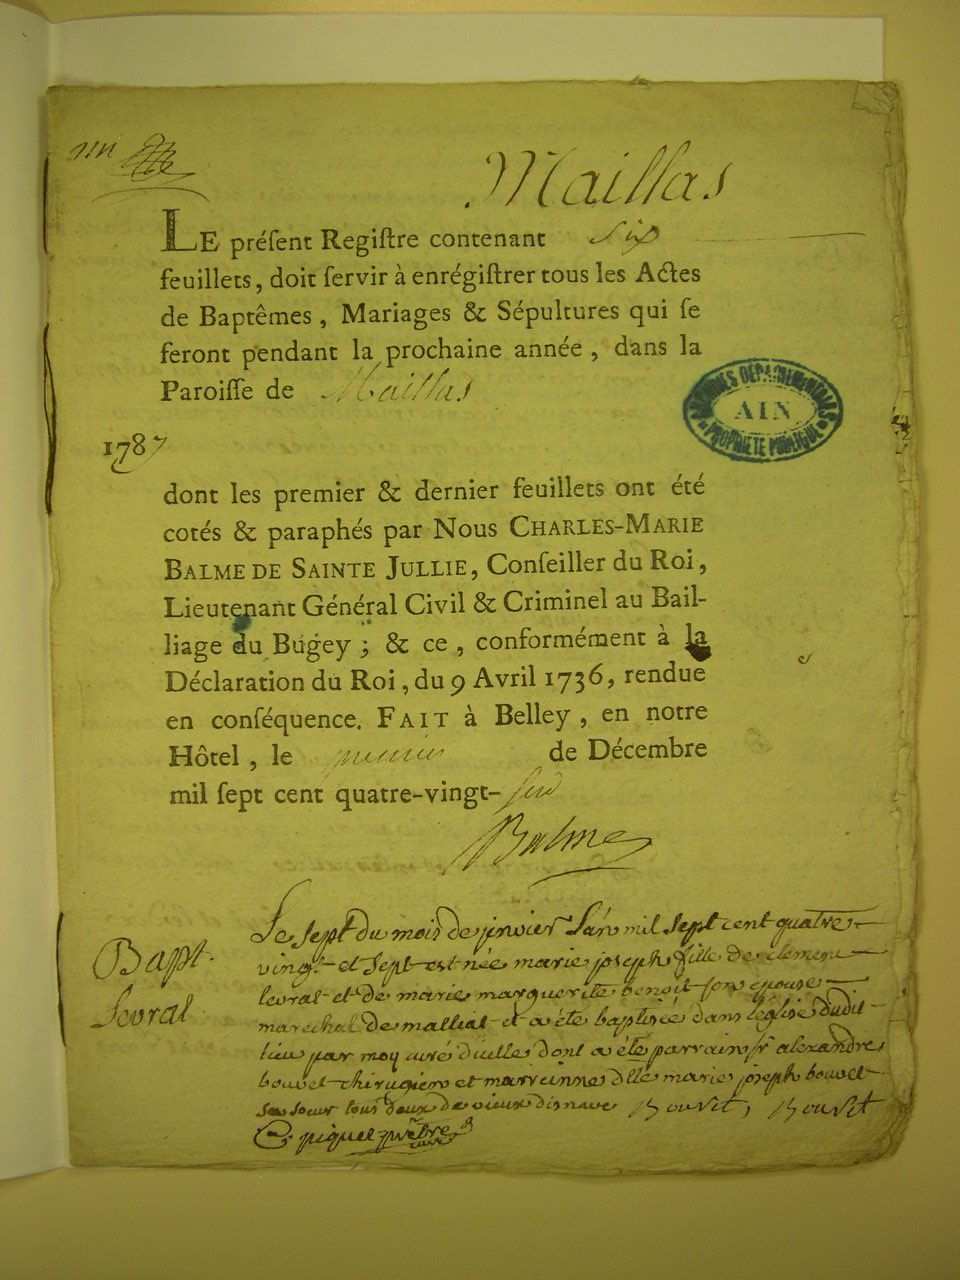 Maillas
LE préſent Regiſtre contenant Six
feuillets, doit ſervir à enrégiſtrer tous les Actes
de Baptêmes, Mariages & Sépultures qui ſe
feront pendant la prochaine année, dans la
Paroiſſe de Maillas
ARCHIVES DEPARTEMENTALES
AIN
PROPRIETE PUBLIQUE
1787
dont les premier & dernier feuillets ont été
cotés & paraphés par Nous CHARLES-MARIE
BALME DE SAINTE JULLIE, Conſeiller du Roi,
Lieutenant Général Civil & Criminel au Bail-
liage du Bugey; & ce, conformément à la
Déclaration du Roi, du 9 Avril 1736, rendue
en conſéquence. FAIT à Belley, en notre
Hôtel, le premier de Décembre
mil ſept cent quatre-vingt-
Balme
Bapt.
Levrat
Le sept du mois de janvier L'an mil sept cent quatre
vingt et sept est née marie joseph fille de clement
levrat et de marie marguerite benoit son epouse
marechal de malliat et a été baptisée dans l'église dudit
lieu par moy curé d'icelles dont a été parrain sr alexandre
bouvet chirugien et marrainne dlle marie joseph bouvet
sa soeur tous deux de vieux disnave Bouvet, Bouvet
piquet prêtre